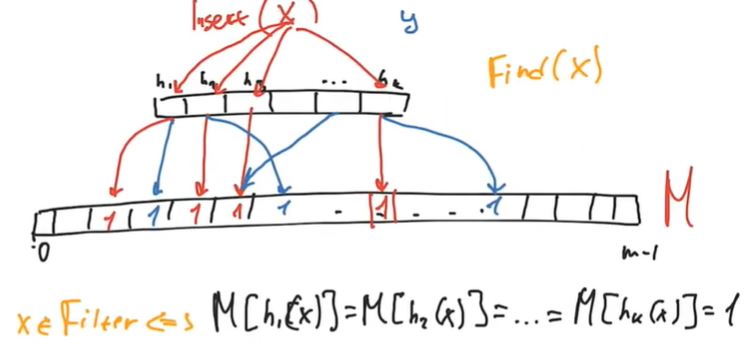 Insert(X)
y
Find(x)
h₁ h₂ h₃ ... hₖ
1 1 1 1 1 - 1 - - - 1
M
0 m-1
x ∈ Filter <=> M[h₁(x)]=M[h₂(x)]=...=M[hₖ(x)]=1